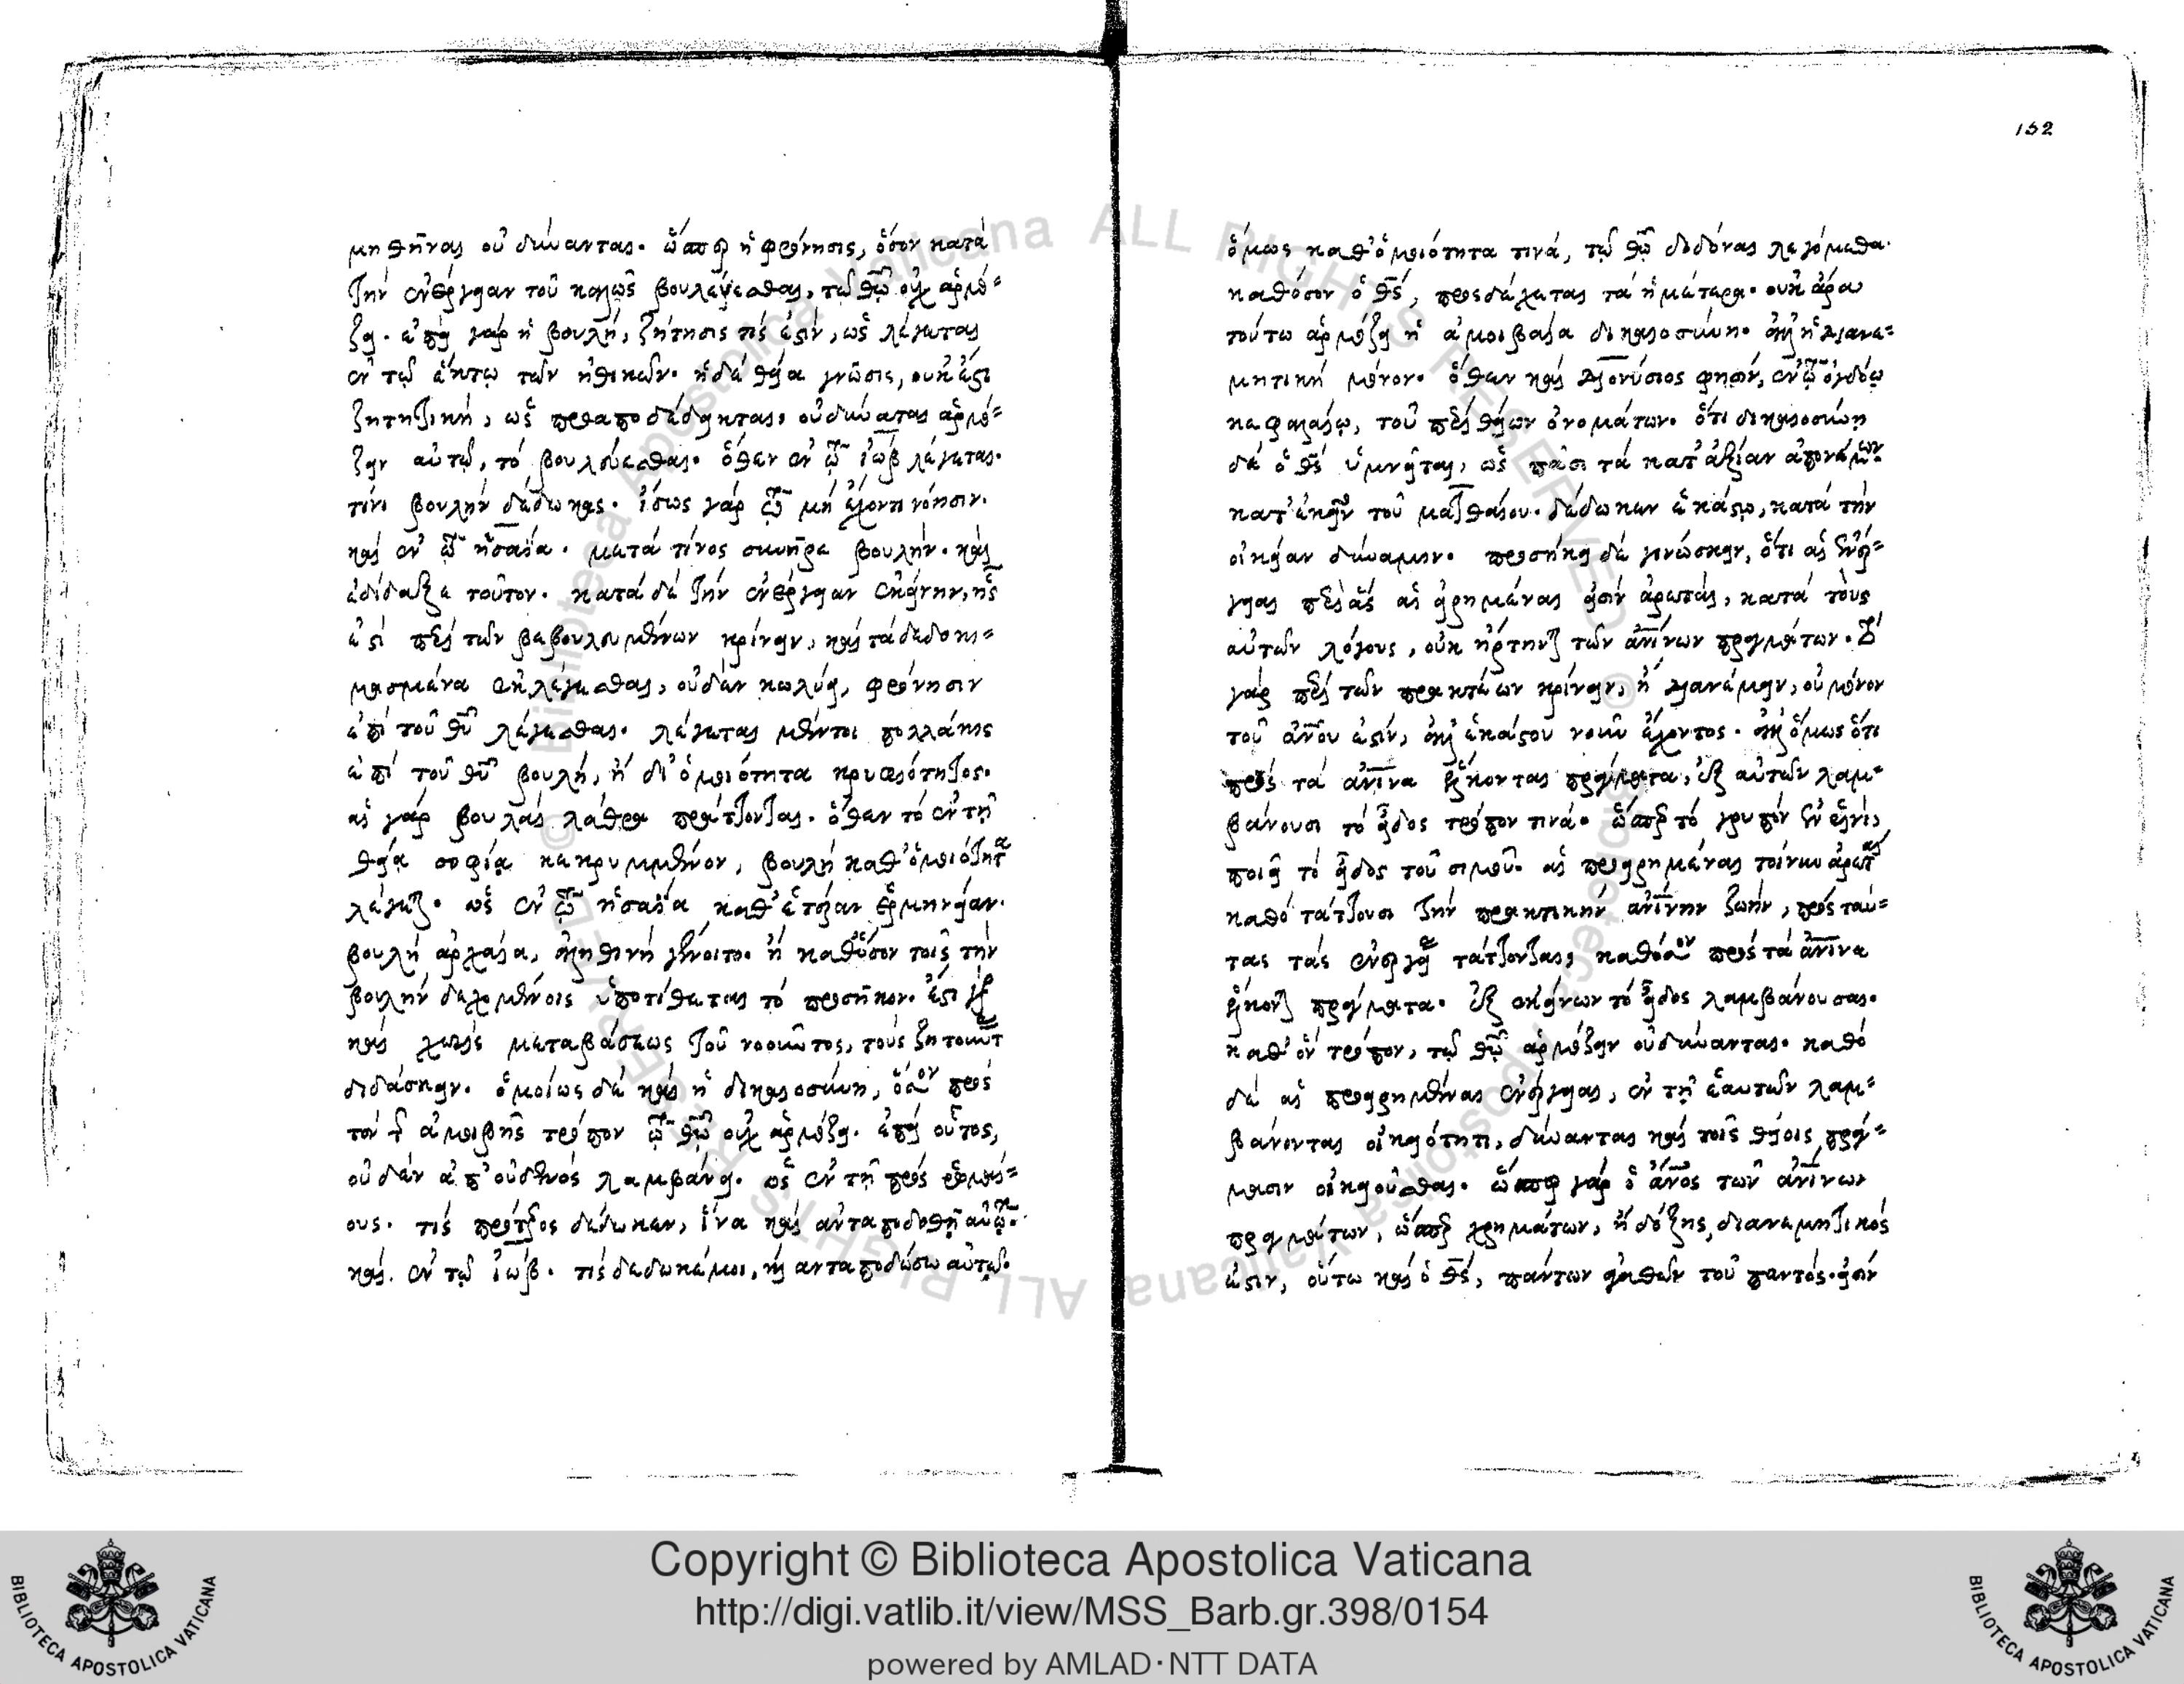 μηθῆναι οὐ δύνανται. ὥσπερ ἡ φρόνησις, ὅσον κατὰ
τὴν ἐνέργειαν τοῦ καλῶς βουλεύεσθαι, τῷ θῷ οὐχ ἁρμό=
ζει. ἐπεὶ γὰρ ἡ βουλή, ζήτησις τίς ἐστιν, ὡς λέγεται
ἐν τῷ ἕκτῳ τῶν ἠθικῶν. ἡ δὲ θεία γνῶσις, οὐκ ἔστι
ζητητική, ὡς προαποδέδεικται, οὐ δύναται ἁρμό=
ζειν αὐτῷ, τὸ βουλεύεσθαι. ὅθεν ἐν τῷ ἰὼβ λέγεται.
τίνι βουλὴν δέδωκας. ἴσως γὰρ τῷ μὴ ἔχοντι νόησιν.
καὶ ἐν τῷ ἠσαΐα. μετὰ τίνος συνῆρε βουλήν. καὶ
ἐδίδαξε τοῦτον. κατὰ δὲ τὴν ἐνέργειαν ἐκείνην, ἥς
ἐστι περὶ τῶν βεβουλευμένων κρίνειν, καὶ τὰ δεδοκι=
μασμένα ἐκλέγεσθαι, οὐδὲν κωλύει, φρόνησιν
ἐπὶ τοῦ θῦ λέγεσθαι. λέγεται μέντοι πολλάκις
ἐπὶ τοῦ θῦ βουλή, ἢ δι' ὁμοιότητα κρυφιότητος.
αἱ γὰρ βουλαὶ λάθρα πράττονται. ὅθεν τὸ ἐν τῇ
θεία σοφία κεκρυμμένον, βουλὴ καθ' ὁμοιότητα
λέγεται. ὡς ἐν τῷ ἠσαΐα καθ' ἑτέραν ἑρμηνείαν.
βουλὴ ἀρχαία, ἀληθινὴ γένοιτο. ἢ καθόσον τοῖς τὴν
βουλὴν δεχομένοις ὑποτίθεται τὸ προσῆκον. ἔστι γὰρ
καὶ χωρὶς μεταβάσεως τοῦ νοοῦντος, τοὺς ζητοῦντας
διδάσκειν. ὁμοίως δὲ καὶ ἡ δικαιοσύνη, ὅσον πρὸς
τὸν τ ἀμοιβῆς τρόπον τῷ θῷ οὐχ ἁρμόζει. ἐπεὶ οὗτος,
οὐδὲν ἀπ' οὐδενὸς λαμβάνει. ὡς ἐν τῇ πρὸς ῥωμαί=
ους. τίς πρότερος δέδωκεν, ἵνα καὶ ἀνταποδοθῇ αὐτῷ.
καὶ. ἐν τῷ ἰὼβ. τίς δέδωκέ μοι, καὶ ανταποδώσω αὐτῷ.
152
ὅμως καθ' ὁμοιότητα τινά, τῷ θῷ διδόναι λεγόμεθα.
καθόσον ὁ θς, προσδέχεται τὰ ἡμέτερα. οὐκ ἄρα
τούτω ἁρμόζει ἡ ἀμοιβαία δικαιοσύνη. ἀλλ' ἡ διανε=
μητικὴ μόνον. ὅθεν καὶ διονύσιος φησίν, ἐν τῷ ὀγδόῳ
κεφαλαίῳ, τοῦ περὶ θείων ὀνομάτων. ὅτι δικαιοσύνη
δὲ ὁ θς ὑμνεῖται, ὡς πᾶσι τὰ κατ' ἀξίαν ἀπονέμων.
κατ' ἐκεῖνο τοῦ ματθαίου. δέδωκεν ἑκάστῳ, κατὰ τὴν
οἰκείαν δύναμιν. προσήκει δὲ γινώσκειν, ὅτι αἱ ἐνέρ=
γειαι περὶ ἃς αἱ εἰρημέναι εἰσὶν ἀρεταί, κατὰ τοὺς
αὐτῶν λόγους, οὐκ ἤρτηνται τῶν ἀνίνων πραγμάτων. τὸ
γὰρ περὶ τῶν πρακτέων κρίνειν, ἢ διανέμειν, οὐ μόνον
τοῦ ἀνου ἐστίν, ἀλλ' ἑκάστου νοῦν ἔχοντος. ἀλλ' ὅμως ὅτι
πρὸς τὰ ἀνινα ἕλκονται πράγματα, ἐξ αὐτῶν λαμ=
βάνουσι τὸ εἶδος τρόπον τινά. ὥσπερ τὸ γρυπὸν ἐν ῥινί,
ποιεῖ τὸ εἶδος τοῦ σιμοῦ. αἱ προειρημέναι τοίνυν ἀρεταὶ
καθὸ τάττουσι τὴν πρακτικὴν ἀνίνην ζωήν, πρὸς ταύ=
τας τὰς ἐνεργείας τάττονται, καθόσον πρὸς τὰ ἀνινα
ἕλκονται πράγματα. ἐξ ἐκείνων τὸ εἶδος λαμβάνουσαι.
καθ' ὃν τρόπον, τῷ θῷ ἁρμόζειν οὐ δύνανται. καθὸ
δὲ αἱ προειρημέναι ἐνέργειαι, ἐν τῇ ἑαυτῶν λαμ=
βάνονται οἰκειότητι, δύνανται καὶ τοῖς θείοις πρά=
γμασιν οἰκειοῦσθαι. ὥσπερ γὰρ ὁ ἄνος τῶν ἀνίνων
πραγμάτων, ὥσπερ χρημάτων, ἢ δόξης, διανεμητικὸς
ἐστιν, οὕτω καὶ ὁ θς, πάντων ἀγαθῶν τοῦ παντός. εἰσὶν
Copyright © Biblioteca Apostolica Vaticana
http://digi.vatlib.it/view/MSS_Barb.gr.398/0154
powered by AMLAD·NTT DATA
BIBLIOTECA APOSTOLICA VATICANA
BIBLIOTECA APOSTOLICA VATICANA
© Biblioteca Apostolica Vaticana ALL RIGHTS RESERVED
© Biblioteca Apostolica Vaticana ALL RIGHTS RESERVED